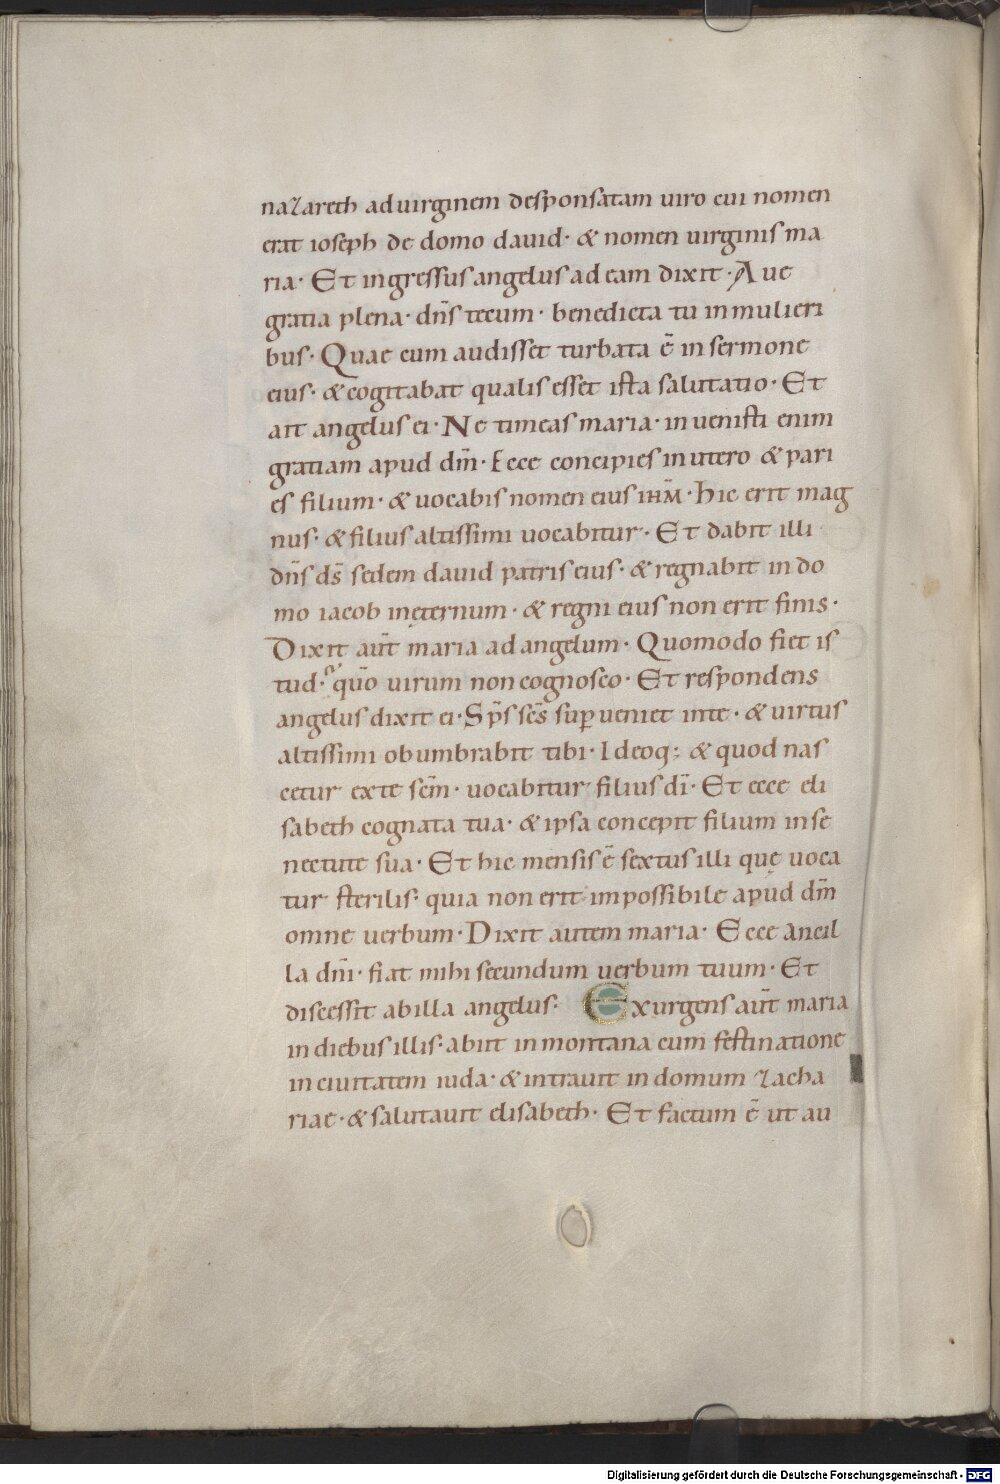 nazareth ad virginem desponsatam viro cui nomen
erat ioseph de domo david· & nomen virginis ma
ria· Et ingressus angelus ad eam dixit· Ave
gratia plena· dn̄s tecum· benedicta tu in mulieri
bus· Quae cum audisset turbata ē in sermone
eius· & cogitabat qualis esset ista salutatio· Et
ait angelus ei· Ne timeas maria· invenisti enim
gratiam apud dm̄· Ecce concipies in utero & pari
es filium· & vocabis nomen eius ihm̄· hic erit mag
nus· & filius altissimi vocabitur· Et dabit illi
dn̄s ds̄ sedem david patris eius· & regnabit in do
mo iacob in ęternum· & regni eius non erit finis·
Dixit aut̄ maria ad angelum· Quomodo fiet is
tud· qūo virum non cognosco· Et respondens
angelus dixit ei· Sp̄s sc̄s sup̱ veniet in te· & virtus
altissimi obumbrabit tibi· Ideoq; & quod nas
cetur ex te scm̄· vocabitur filius dī· Et ecce eli
sabeth cognata tua· & ipsa concepit filium in se
nectute sua· Et hic mensis ē sextus illi quę voca
tur sterilis· quia non erit impossibile apud dm̄
omne verbum· Dixit autem maria· Ecce ancil
la dm̄i· fiat mihi secundum verbum tuum· Et
discessit ab illa angelus· Exurgens aut̄ maria
in diebus illis· abiit in montana cum festinatione
in civitatem iuda· & intravit in domum zacha
riae· & salutavit elisabeth· Et factum ē ut au
Digitalisierung gefördert durch die Deutsche Forschungsgemeinschaft - DFG